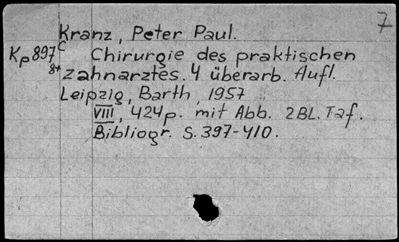 7
Kranz, Peter Paul.
Kp897c Chirurgie des praktischen
8+ Zahnarztes. 4 überarb. Aufl.
Leipzig, Barth, 1957
VIII, 424p. mit Abb. 2BL. Taf.
Bibliogr. S.397-410.